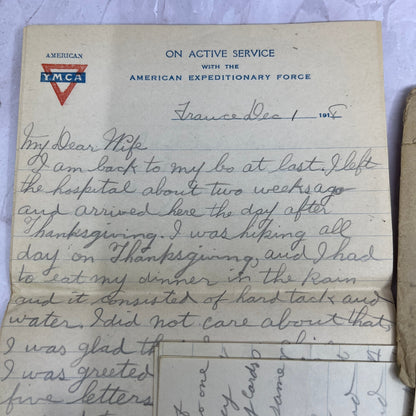 AMERICAN
Y.M.C.A
ON ACTIVE SERVICE
WITH THE
AMERICAN EXPEDITIONARY FORCE
France Dec 1 1918
My Dear Wife
I am back to my bo at last. I left
the hospital about two weeks ago
and arrived here the day after
Thanksgiving. I was hiking all
day on Thanksgiving, and I had
to eat my dinner in the rain
and it consisted of hard tack and
water. I did not care about that
I was glad
I was greeted
five letters
one
cards
same
and